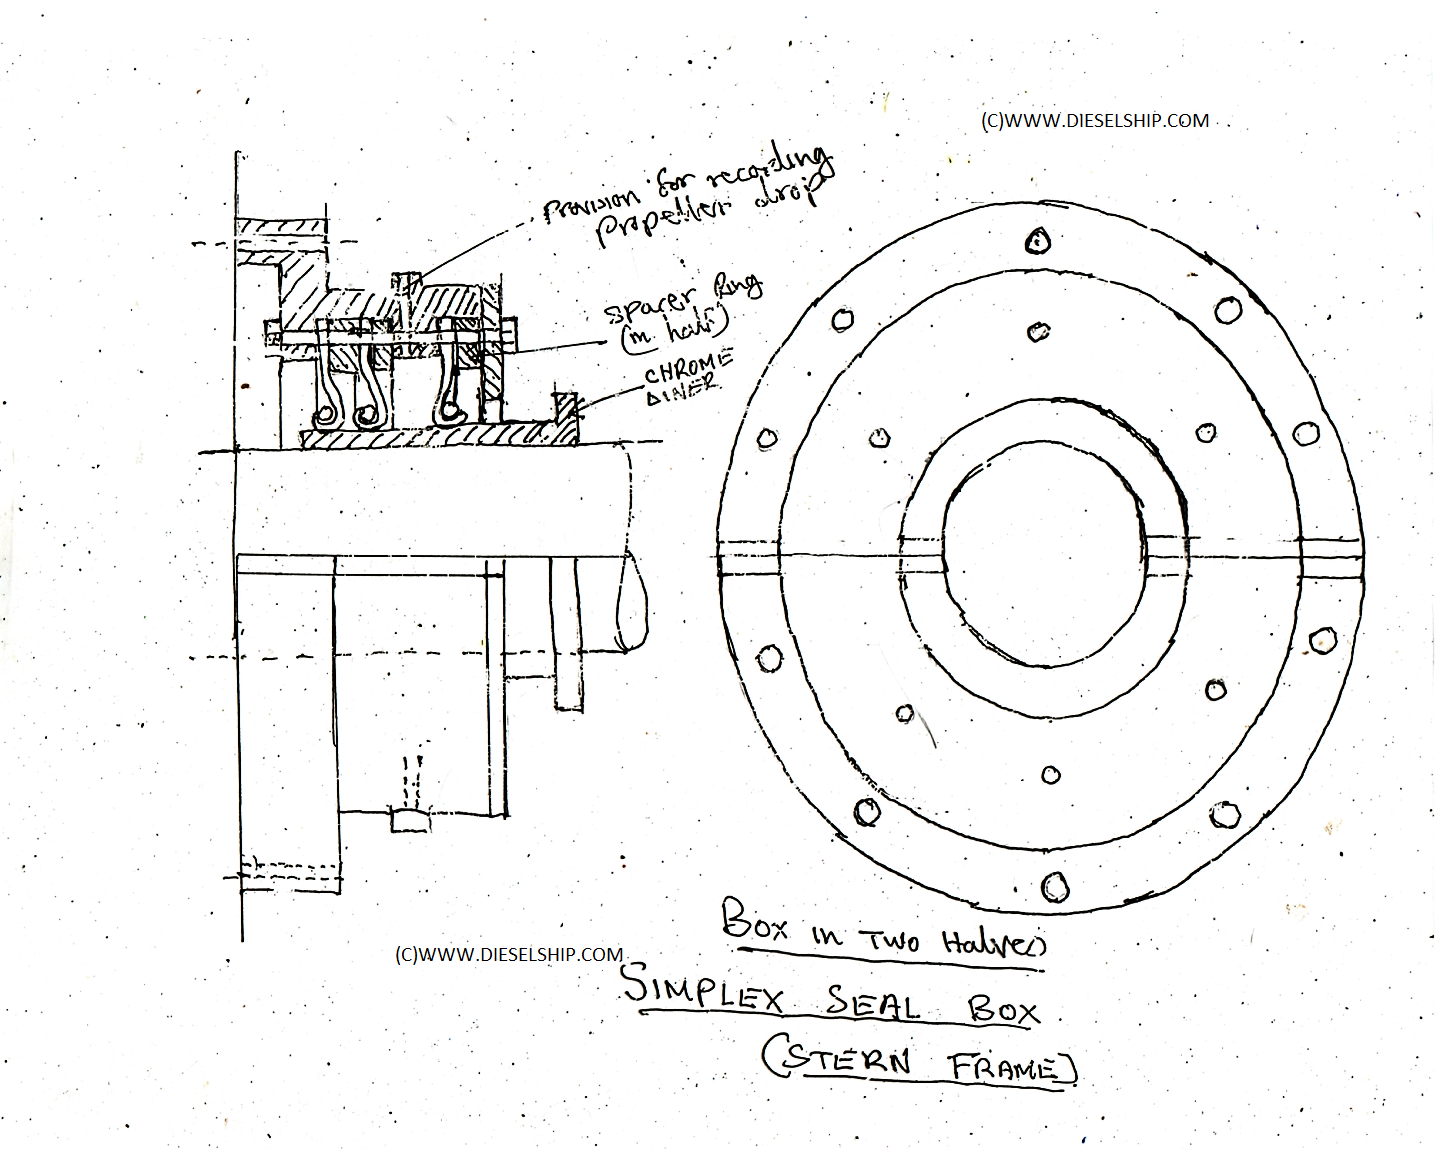 (C)WWW.DIESELSHIP.COM
Provision for recording
propeller drop
Spacer Ring
(in half)
CHROME
LINER
(C)WWW.DIESELSHIP.COM
Box in Two Halves
SIMPLEX SEAL BOX
(STERN FRAME)